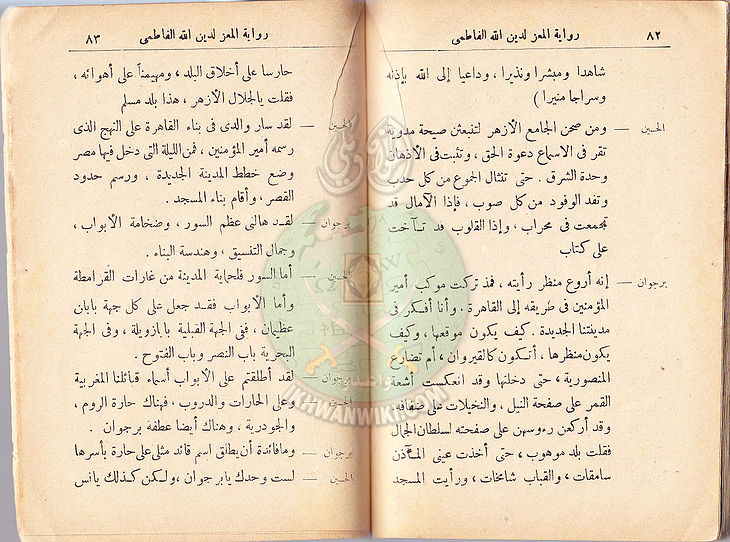 ٨٢ رواية المعز لدين الله الفاطمى
شاهدا ومبشرا ونذيرا ، وداعيا إلى الله بإذنه
وسراجا منيرا )
الحسين — ومن صحن الجامع الأزهر لتنبعثن صيحة مدوية
تقر فى الاسماع دعوة الحق ، وتثبت فى الأذهان
وحدة الشرق . حتى تنثال الجموع من كل حدب
وتفد الوفود من كل صوب ، فإذا الآمال قد
تجمعت فى محراب ، وإذا القلوب قد تـآخت
على كتاب
برجوان — إنه أروع منظر رأيته ، فمذ تركت موكب أمير
المؤمنين فى طريقه إلى القاهرة ، وأنا أفكر فى
مدينتنا الجديدة . كيف يكون موقعها ، وكيف
يكون منظرها ، أتكون كالقيروان ، أم تضارع
المنصورية ، حتى دخلتها وقد انعكست أشعة
القمر على صفحة النيل ، والنخيلات على ضفافه،
وقد أركعن رءوسهن على صفحته لسلطان الجمال
فقلت بلد موهوب ، حتى أخذت عينى المـآذن
سامقات ، والقباب شامخات ، ورأيت المسجد
رواية المعز لدين الله الفاطمى ٨٣
حارسا على أخلاق البلد ، ومهيمنا على أهوائه ،
فقلت يالجلال الأزهر ، هذا بلد مسلم
الحسين — لقد سار والدى فى بناء القاهرة على النهج الذى
رسمه أمير المؤمنين ، فمن الليلة التى دخل فيها مصر
وضع خطط المدينة الجديدة ، ورسم حدود
القصر ، وأقام بناء المسجد .
برجوان — لقـد هالنى عظم السور ، وضخامة الأبواب ،
وجمال التنسيق ، وهندسة البناء .
الحسين — أما السور فلحماية المدينة من غارات القرامطة
وأما الأبواب فقـد جعل على كل جهة بابان
عظيمان ، ففى الجهة القبلية بابا زويلة ، وفى الجهة
البحرية باب النصر وباب الفتوح .
برجوان — لقد أطلقتم على الأبواب أسماء قبائلنا المغربية
الحسين — وعلى الحارات والدروب ، فهناك حارة الروم ،
والجودرية ، وهناك أيضا عطفة برجوان .
برجوان — وما فائدة أن يطلق اسم قائد مثلى على حارة بأسرها
الحسين — لست وحدك يا برجوان ، ولـكن كـذلك يانس
IKHWANWIKI.COM